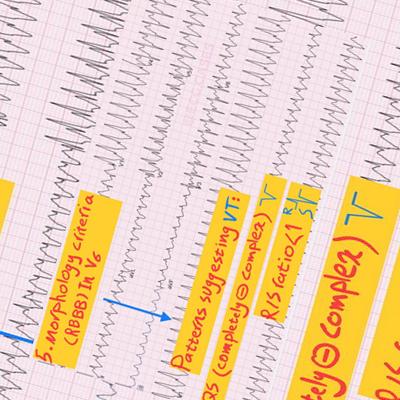 5. Morphology criteria
(RBBB) In V6
Patterns suggesting VT:
QS (completely ⊖ complex)
R/S ratio <1 R
S
tely ⊖ complex)